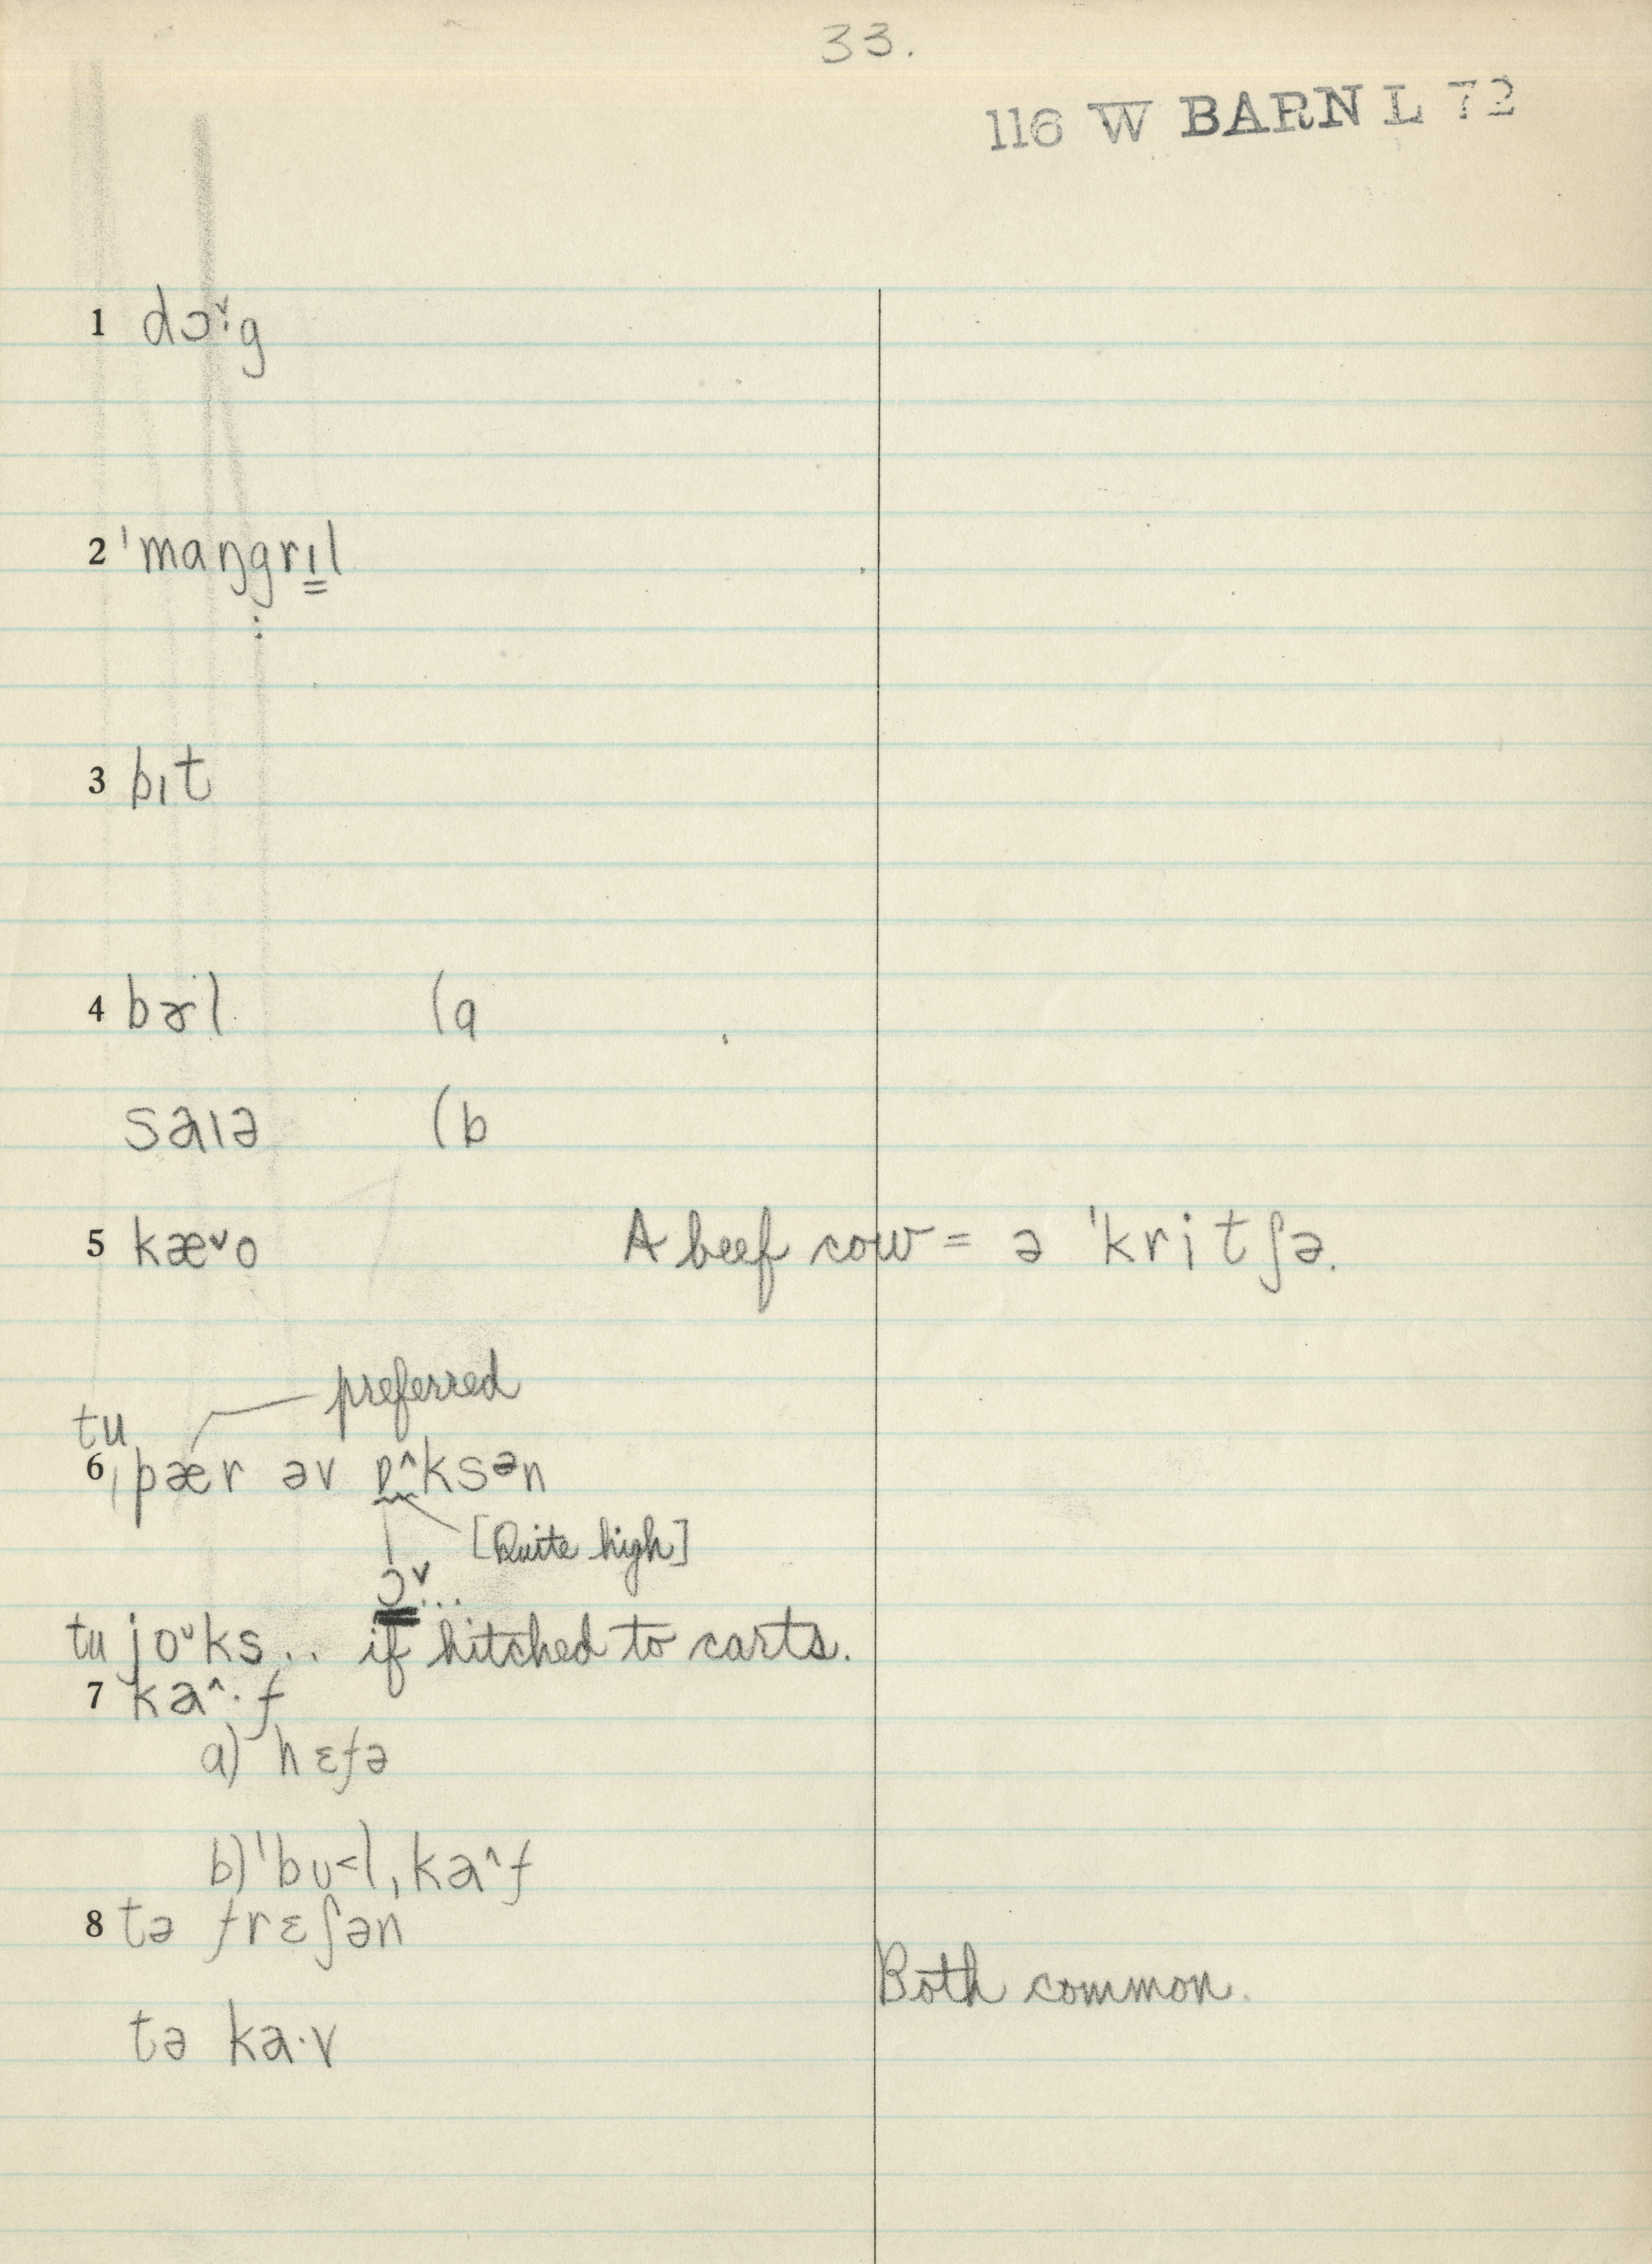 33.
116 W BARN L 72
1 dɔˇ·g
2 ˈmaŋgrɪl
3 bɪt
4 bɚl (a
saɪə (b
5 kæˇo A beef cow = ə ˈkritʃə.
preferred
tu
6 ˌpær əv ɒ^ksən
[Quite high]
ɔˇ...
tu joᵕks.. if hitched to carts.
7 ka^·f
a) hɛfə
b) ˈbʊ<lˌka^f
8 tə frɛʃən
Both common.
tə ka·v